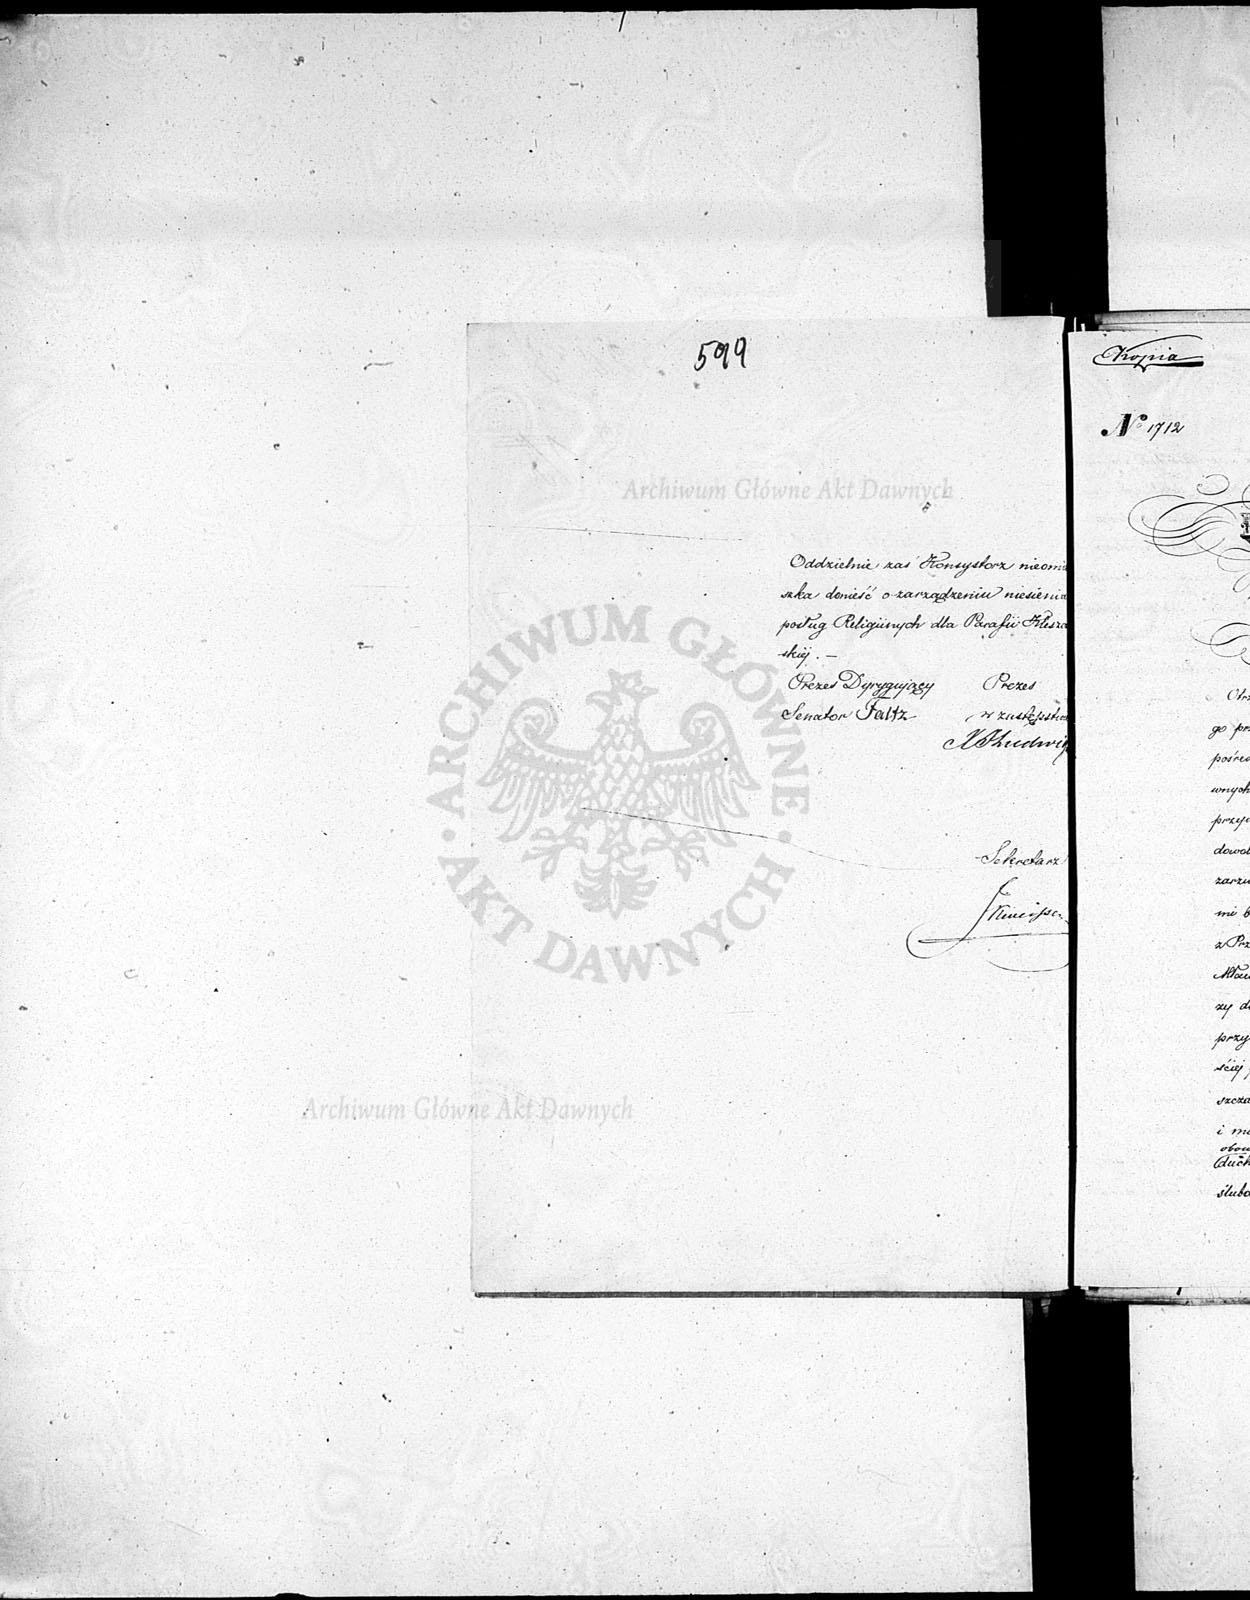 599
Archiwum Główne Akt Dawnych
Oddzielnie zaś Konsystorz nieomie
szka donieść o zarządzeniu niesienia
posług Religijnych dla Parafii
skiéj. —
Prezes Dyrygujący Prezes
Senator Faltz w zastępstwie
Ludwig
Sekretarz
ARCHIWUM GŁÓWNE · AKT DAWNYCH ·
Archiwum Główne Akt Dawnych
Kopia
No 1712
go prz
pośred
wnych
przy
dowol
zarzu
mi b
z Prz
zy do
przy
ściéj
szcza
i ma
obow
duch
ślubo